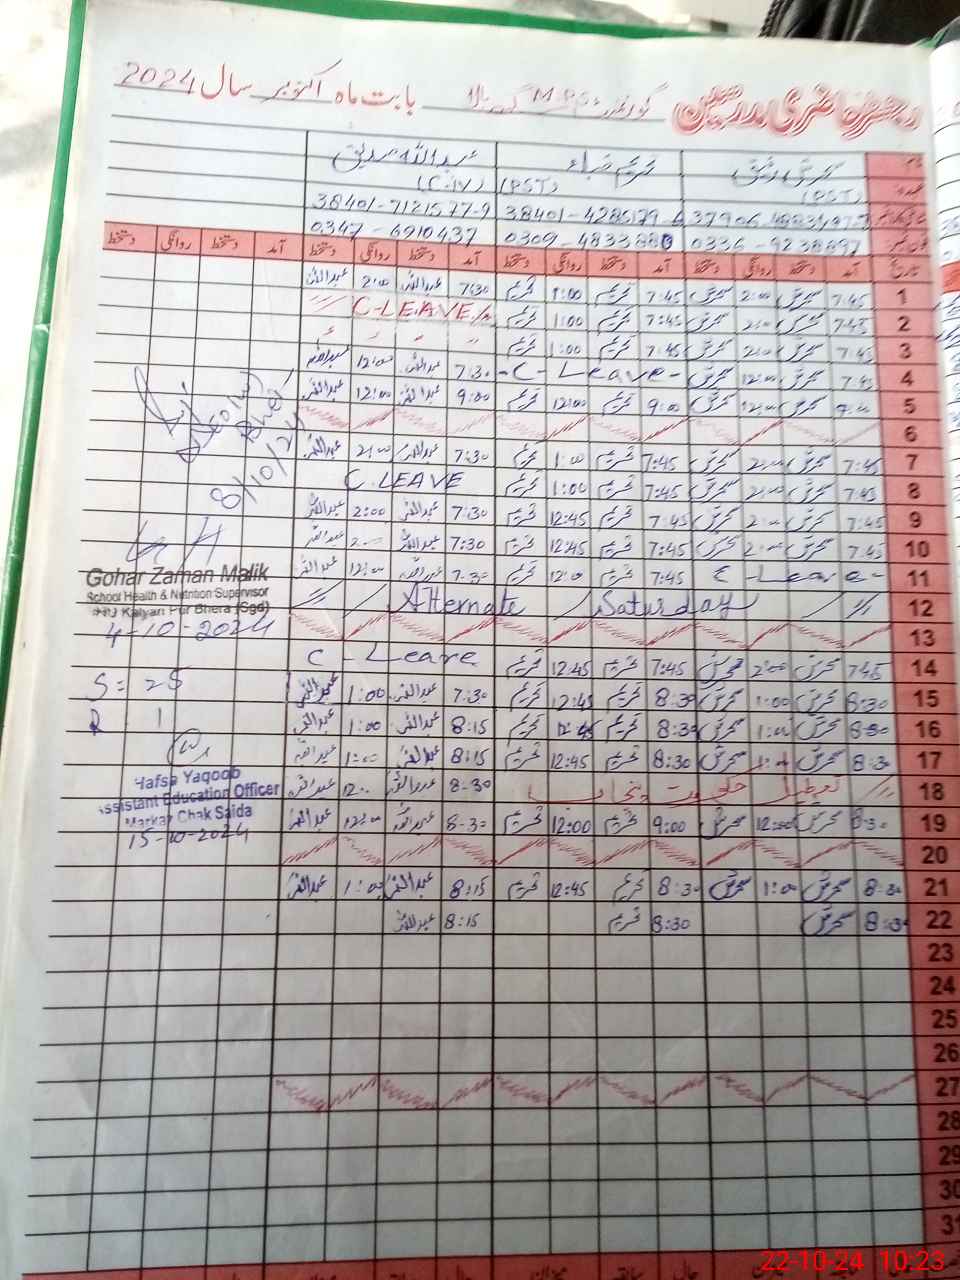 رجسٹر حاضری مدرسین گورنمنٹ M.P.S بابت ماہ اکتوبر سال 2024
نام عبداللہ صدیق
عہدہ (PST) (PST) (C.IV)
38401-7121577-9
0336-9238897 0309-4833880 0347-6910437
تاریخ آمد دستخط روانگی دستخط آمد دستخط روانگی دستخط آمد دستخط روانگی دستخط آمد دستخط روانگی دستخط
1 7:45 سحرش 2:00 سحرش 7:45 تحریم 1:00 تحریم 7:30 عبداللہ 2:00 عبداللہ
2 7:45 سحرش 2:00 سحرش 7:45 تحریم 1:00 تحریم C-LEAVE
3 7:45 سحرش 2:00 سحرش 7:45 تحریم 1:00 تحریم
4 7:45 سحرش 12:00 سحرش -C-Leave- 7:30 عبداللہ 12:00 عبداللہ
5 9:00 سحرش 12:00 سحرش 9:00 تحریم 12:00 تحریم 9:00 عبداللہ 12:00 عبداللہ
6
7 7:45 سحرش 2:00 سحرش 7:45 تحریم 1:00 تحریم 7:30 عبداللہ 2:00 عبداللہ
8 7:45 سحرش 2:00 سحرش 7:45 تحریم 1:00 تحریم C.LEAVE
9 7:45 سحرش 2:00 سحرش 7:45 تحریم 12:45 تحریم 7:30 عبداللہ 2:00 عبداللہ
10 7:45 سحرش 2:00 سحرش 7:45 تحریم 12:45 تحریم 7:30 عبداللہ 2:00 عبداللہ
11 C-Leave- 7:45 تحریم 12:00 تحریم 7:30 عبداللہ 12:00 عبداللہ
12 Alternate Saturday
13
14 7:45 سحرش 2:00 سحرش 7:45 تحریم 12:45 تحریم C-Leave
15 8:30 سحرش 1:00 سحرش 8:30 تحریم 12:45 تحریم 7:30 عبداللہ 1:00 عبداللہ
16 8:30 سحرش 1:00 سحرش 8:30 تحریم 12:45 تحریم 8:15 عبداللہ 1:00 عبداللہ
17 8:30 سحرش 1:00 سحرش 8:30 تحریم 12:45 تحریم 8:15 عبداللہ 1:00 عبداللہ
18 تعطیل حکومت پنجاب 8-30 عبداللہ 12:00 عبداللہ
19 8:30 سحرش 12:00 سحرش 9:00 تحریم 12:00 تحریم 8-30 عبداللہ 12:00 عبداللہ
20
21 8:30 سحرش 1:00 سحرش 8:30 تحریم 12:45 تحریم 8:15 عبداللہ 1:00 عبداللہ
22 8:30 سحرش 8:30 تحریم 8:15 عبداللہ
23
24
25
26
27
28
29
30
31
8/10/24
Gohar Zaman Malik
School Health & Nutrition Supervisor
Kalyan Pur Bhera (Sgd)
4-10-2024
S = 25
1
Hafsa Yaqoob
Assistant Education Officer
Markaz Chak Saida
15-10-2024
22-10-24 10:23